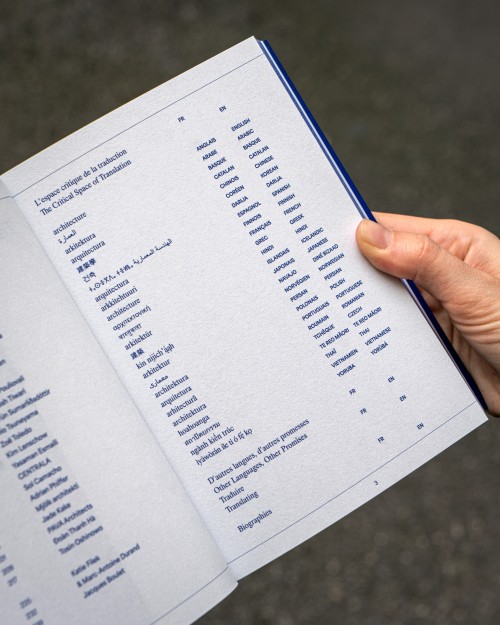 Zoë Toledo
Kim Lenschow
Yasaman Esmaili
CENTRALA
Sol Camacho
Adrian Phiffer
Mjölk architekti
Jade Kake
PAVA Architects
Đoàn Thanh Hà
Tosin Oshinowo
Katie Filek
& Marc-Antoine Durand
Jacques Boulet
FR EN
L'espace critique de la traduction
The Critical Space of Translation
architecture ANGLAIS ENGLISH
العمارة ARABE ARABIC
arkitektura BASQUE BASQUE
arquitectura CATALAN CATALAN
建築學 CHINOIS CHINESE
건축 CORÉEN KOREAN
الهندسة المعمارية DARIJA DARIJA
arquitectura ESPAGNOL SPANISH
arkkitehtuuri FINNOIS FINNISH
architecture FRANÇAIS FRENCH
αρχιτεκτονική GREC GREEK
वास्तुकला HINDI HINDI
arkitektúr ISLANDAIS ICELANDIC
建築 JAPONAIS JAPANESE
kin nijich' NAVAJO DINÉ BIZAAD
arkitektur NORVÉGIEN NORWEGIAN
معماری PERSAN PERSIAN
architektura POLONAIS POLISH
arquitetura PORTUGAIS PORTUGUESE
arhitectură ROUMAIN
architektura TCHÈQUE CZECH
hoahoanga TE REO MĀORI TE REO MĀORI
สถาปัตยกรรม THAÏ THAI
ngành kiến trúc VIETNAMIEN VIETNAMESE
Iyàwòrán ilé tí ó fẹ́ kọ YORUBA YORÙBÁ
D'autres langues, d'autres promesses FR
Other Languages, Other Promises EN
Traduire FR
Translating EN
Biographies FR EN
3